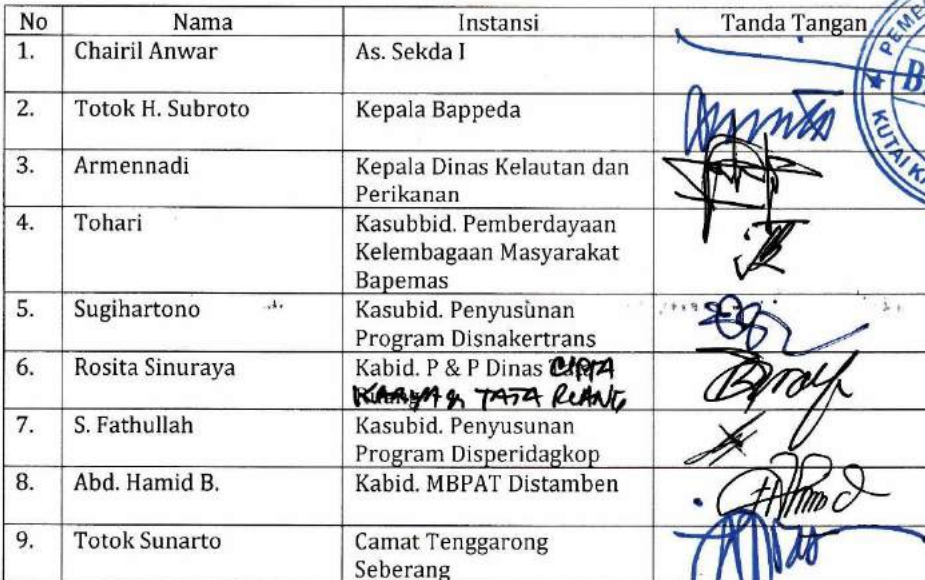 No Nama Instansi Tanda Tangan
1. Chairil Anwar As. Sekda I
2. Totok H. Subroto Kepala Bappeda
3. Armennadi Kepala Dinas Kelautan dan
Perikanan
4. Tohari Kasubbid. Pemberdayaan
Kelembagaan Masyarakat
Bapemas
5. Sugihartono Kasubid. Penyusunan
Program Disnakertrans
6. Rosita Sinuraya Kabid. P & P Dinas CIPTA
KARYA & TATA RUANG
7. S. Fathullah Kasubid. Penyusunan
Program Disperidagkop
8. Abd. Hamid B. Kabid. MBPAT Distamben
9. Totok Sunarto Camat Tenggarong
Seberang
KUTAI